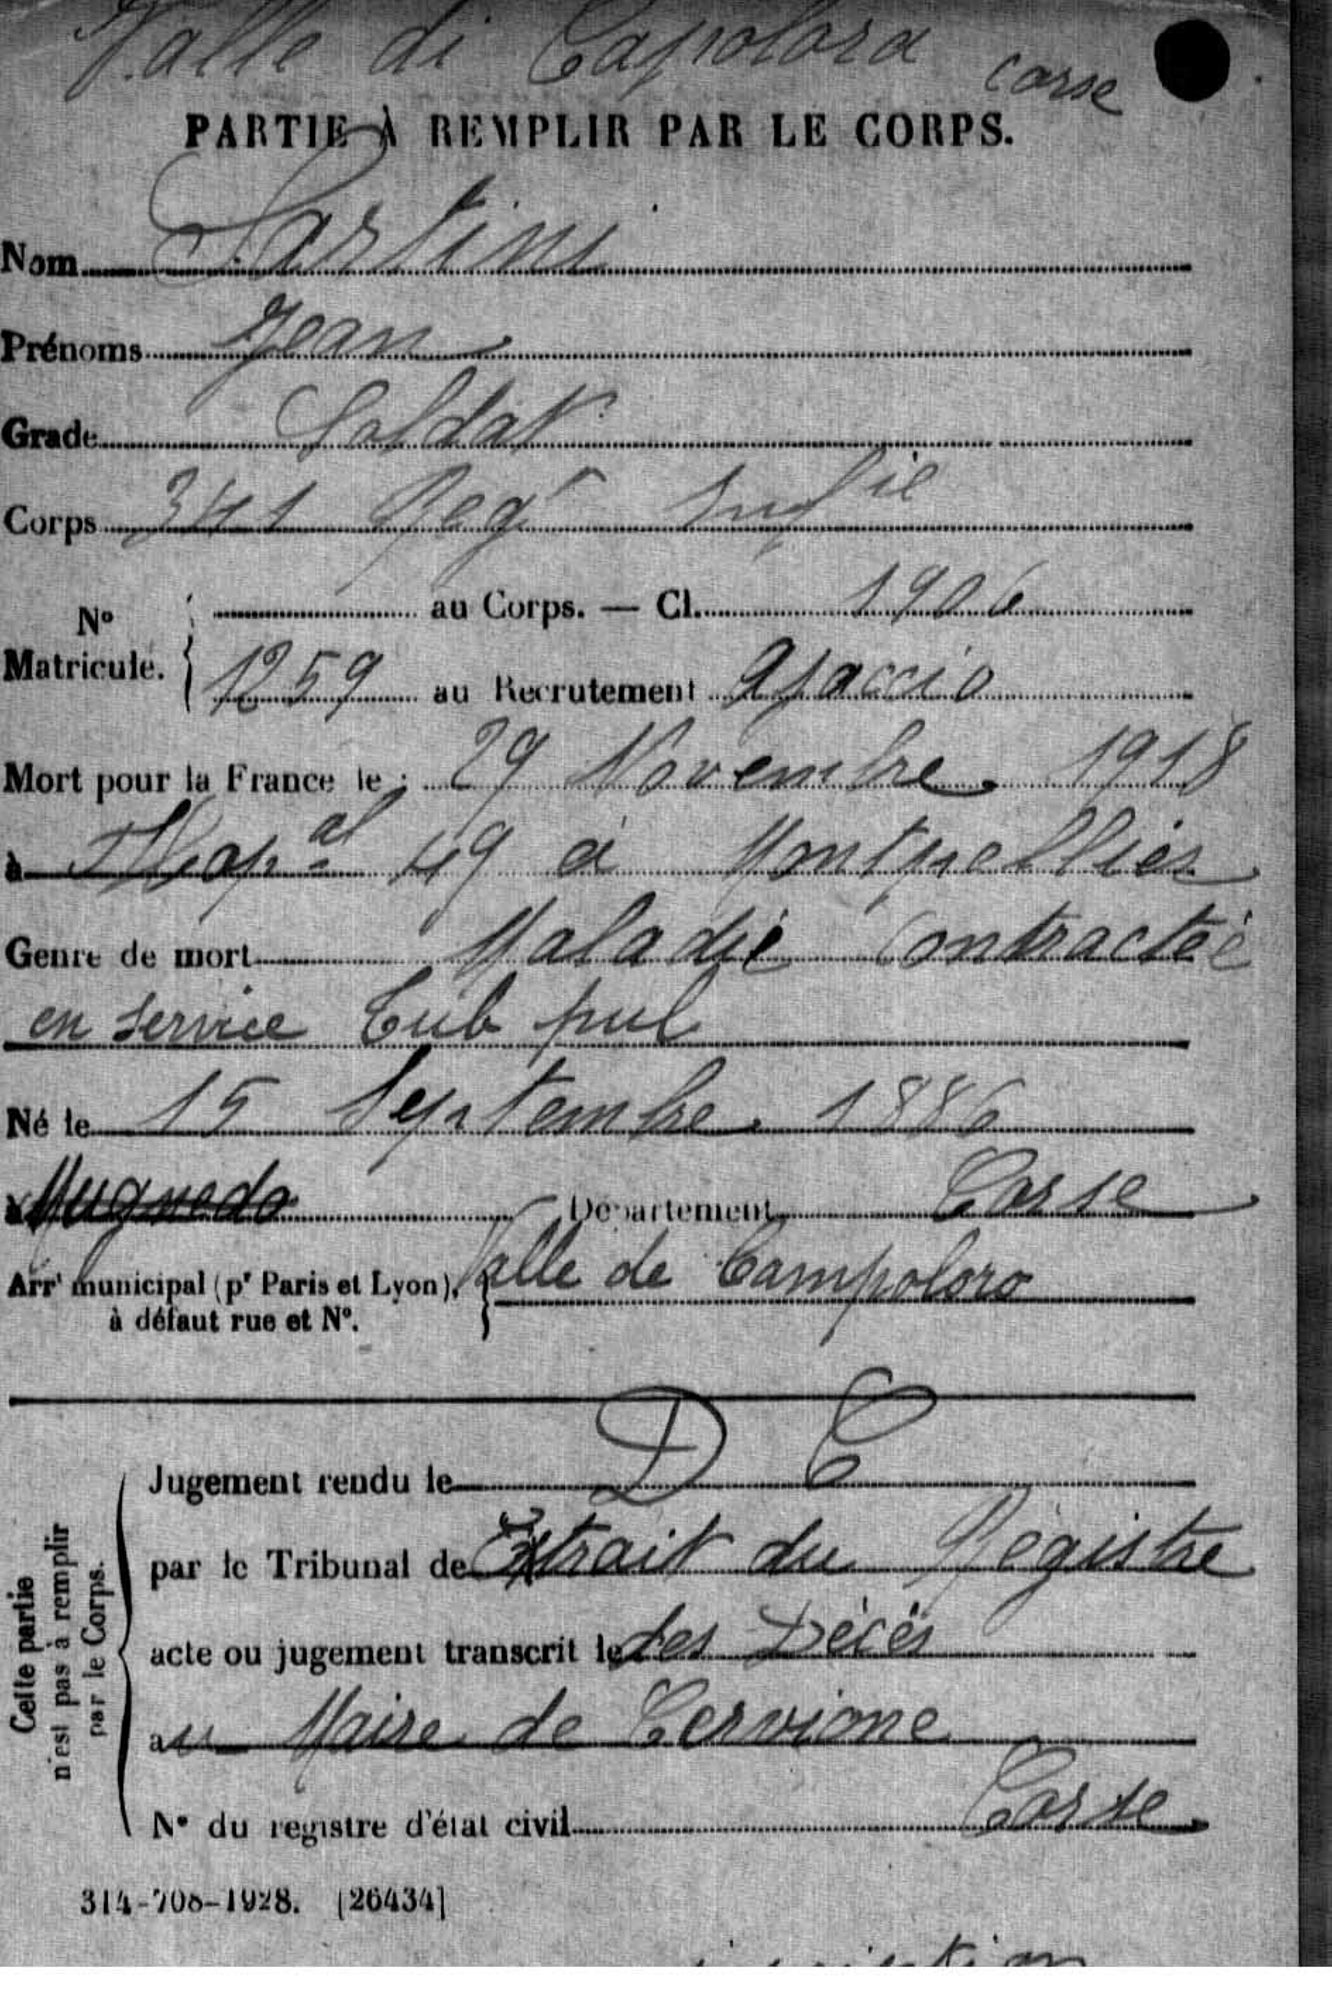 Valle di Capolora Corse
PARTIE À REMPLIR PAR LE CORPS.
Nom Sartini
Prénoms Jean
Grade Soldat
Corps 341 Regt Infie
N° Matricule. { au Corps. — Cl. 1906
1259 au Recrutement Ajaccio
Mort pour la France le : 29 Novembre 1918
à Hopal 49 à Montpellier
Genre de mort Maladie Contractée
en service Tub pul
Né le 15 Septembre 1886
à Département Corse
Arrt municipal (pr Paris et Lyon), à défaut rue et N°. } Valle de Campoloro
D C
Jugement rendu le
par le Tribunal de Extrait du Régistre
acte ou jugement transcrit le des Décès
au Maire de Cervione
N° du registre d'état civil Corse
Cette partie n'est pas à remplir par le Corps.
314-708-1928. [26434]